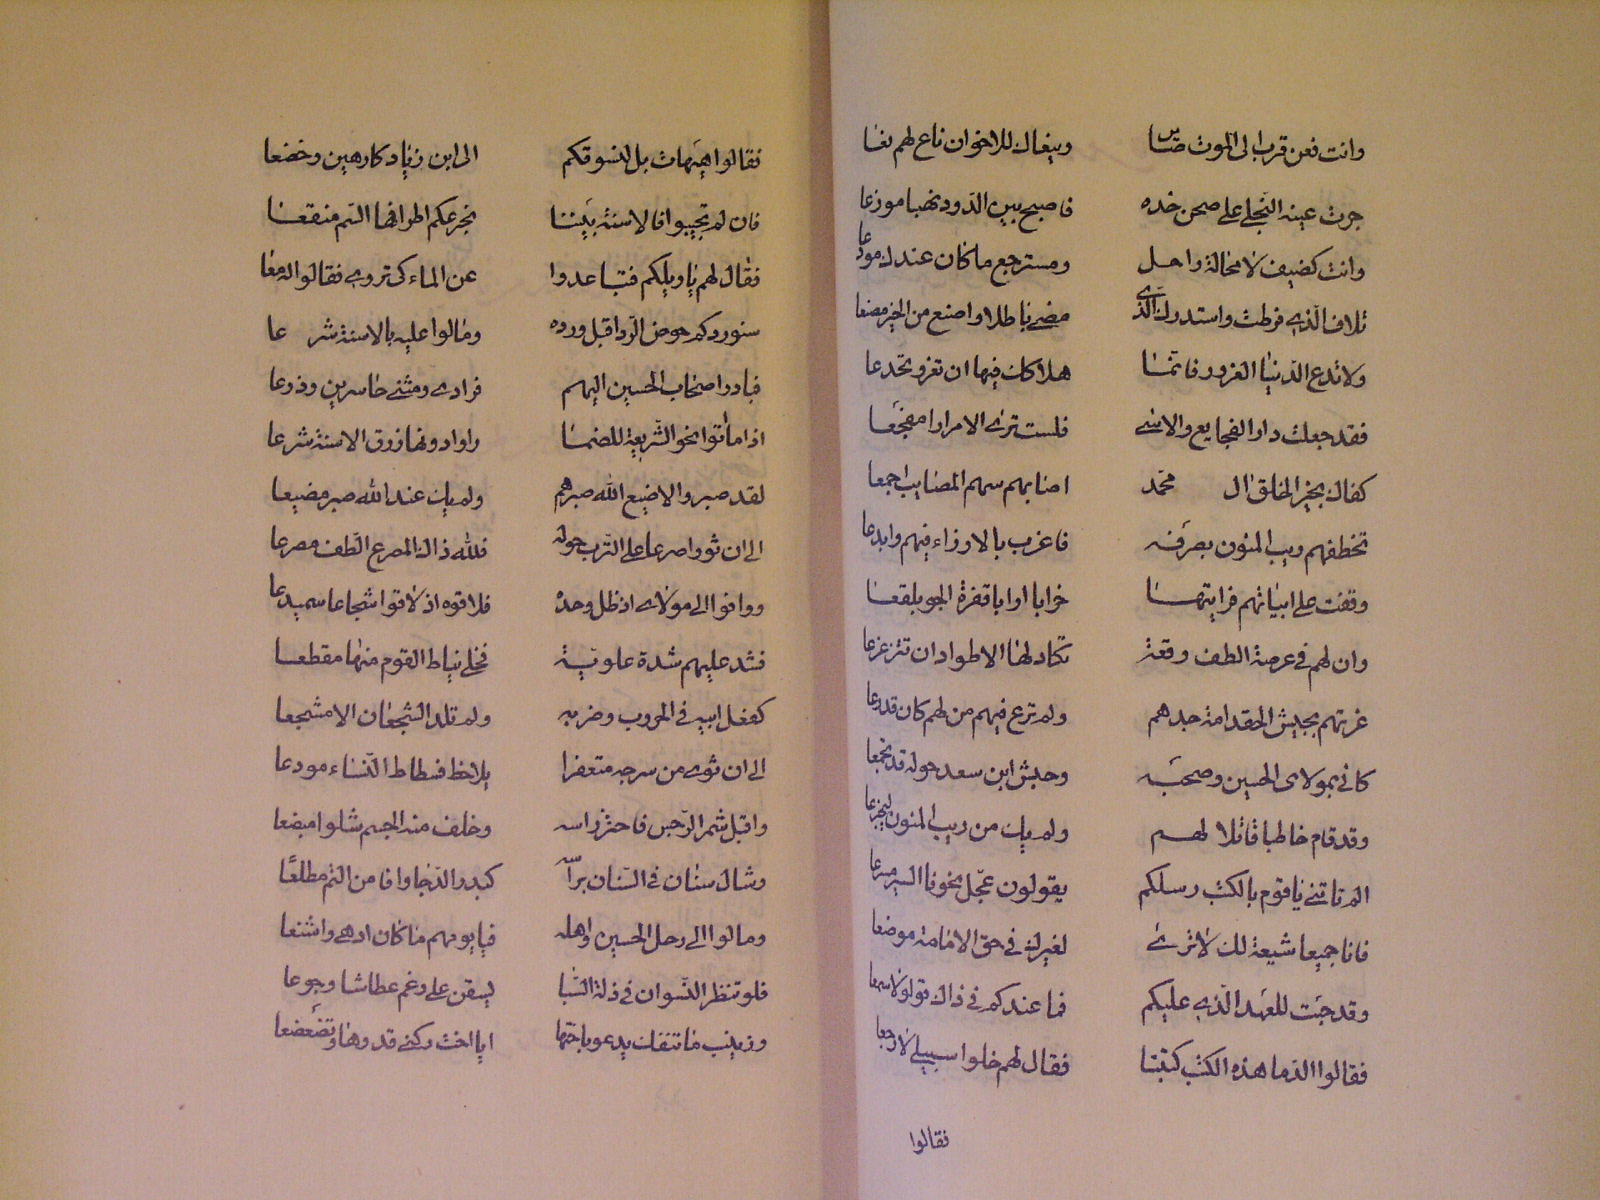 وانت فعن قرب الى الموت صاير وينعاك للاخوان ناع لهم نعا
جرت عينه النجلى على صحن خده فاصبح بين الدود نهبا موزعا
وانت كضيف لا مخالة راحل ومسترجع ما كان عندك مودعا
تلاف الذي فرطت واستدرك الذي مضى باطلا واصنع من الخير مصنعا
ولا تدع الدنيا الغرور فانما هلاكك فيها ان تغر وتخدعا
فقد جعلت دار الفجايع والاسى فلست ترى الا مرارا مفجعا
كفاك بخير الخلق ال محمد اصابهم سهم المصايب اجمعا
تخطفهم ريب المنون بصرفه فاغرب بالارزاء فيهم وابدعا
وقفت على ابياتهم فرايتها خرابا ابا قفرة الجو بلقعا
وان لهم في عرصة الطف وقعة تكاد لها الاطواد ان تتزعزعا
غزتهم بجيش الحقد امة جدهم ولم ترع فيهم من لهم كان قد رعا
كاني بمولاي الحسين وصحبه وجيش ابن سعد حوله قد تجمعا
وقد قام خاطبا قائلا لهم ولم يك من ريب المنون ليجزعا
الم تاتني يا قوم بالكتب رسلكم يقولون عجل نحونا السير مسرعا
فانا جميعا شيعة لك لا نرى لغيرك في حق الامامة موضعا
وقد جئت للعهد الذي عليكم فما عندكم في ذاك قولوا لاسمعا
فقالوا له ما هذه الكتب كتبنا فقال لهم خلوا سبيلي لارجعا
فقالوا
فقالوا هيهات بل لنسوقكم الى ابن زياد كارهين وخضعا
فان لم تجيبوا فالاسنة بيننا تجرعكم اطرافها السم منقعا
فقال لهم يا ويلكم فتباعدوا عن الماء كى نروى فقالوا له معا
سنوردكم حوض الردا قبل ورده ومالوا عليه بالاسنة شرعا
فبادر اصحاب الحسين اليهم فرادى ومثنى حاسرين ودرعا
اذا ما اتوا نحو الشريعة للضما راوا دونها زرق الاسنة شرعا
لقد صبروا لا ضيع الله صبرهم ولم يك عند الله صبر مضيعا
الى ان ثووا صرعا على الترب حوله فلله ذاك المصرع الطف مصرعا
ووافوا الى مولاى اذ ظل وحده فلاقوه اذ لاقوا شجاعا سميدعا
فشد عليهم شدة علوية فخلى نياط القوم منها مقطعا
كفعل ابيه في الحروب وضربه ولم تلد الشجعان الا مشجعا
الى ان ثوى من سرجه متعفرا يلاحظ فسطاط النساء مودعا
واقبل شمر الرجس فاحتز راسه وخلف منه الجسم شلوا مبضعا
وشال سنان في السنان براسه كبدر الدجا وافا من التم مطلعا
ومالوا الى رحل الحسين واهله فيا يومهم ما كان ادهى واشنعا
فلو تنظر النسوان في ذلة السبا يسقن على رغم عطاشا وجوعا
وزينب ما تنفك يدعو باختها ايا اخت ركني قد وها وتضعضعا